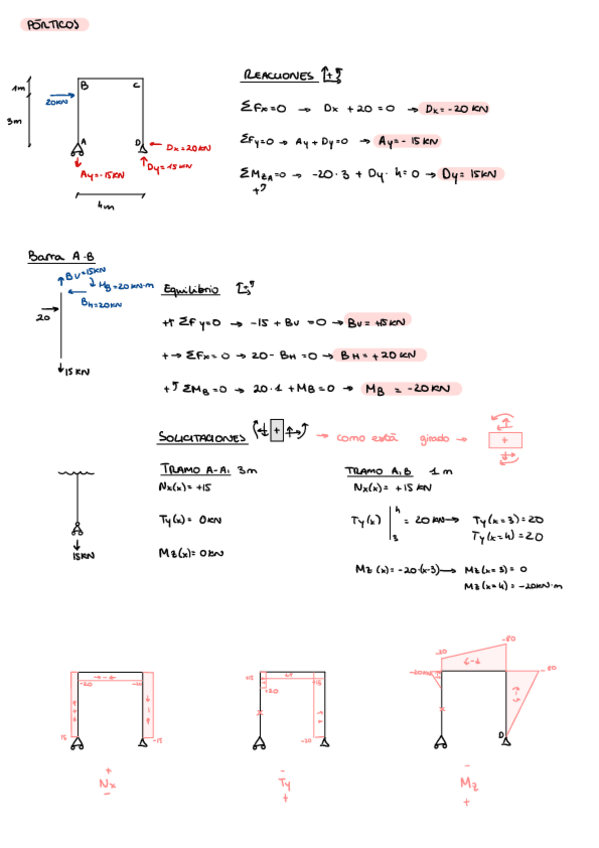 PÓRTICOS
REACCIONES
1m
3m
B
C
20KN
A
D
Dx=20KN
Ay=-15KN
Dy=15KN
4m
ΣFx=0 → Dx + 20 = 0 → Dx=-20 KN
ΣFy=0 → Ay + Dy=0 → Ay=-15 KN
ΣMzA=0 → -20·3 + Dy·4=0 → Dy= 15KN
Barra A-B
BV=15KN
MB=20KN·m
BH=20KN
20
15KN
Equilibrio
+↑ ΣFy=0 → -15 + BV =0 → BV=+15KN
+→ ΣFx=0 → 20- BH =0 → BH=+20KN
ΣMB=0 → 20·1 +MB=0 → MB =-20KN
SOLICITACIONES
+
→ como está girado →
+
15KN
TRAMO A-A1 3m
Nx(x)= +15
Ty(x)= 0KN
Mz(x)= 0KN
TRAMO A1B 1m
Nx(x)= +15KN
Ty(x) |4 3 = 20KN → Ty(x=3)=20
Ty(x=4)=20
Mz(x)=-20·(x-3) → Mz(x=3)= 0
Mz(x=4)=-20KN·m
-20
-20
15
-15
+
Nx
-
+15
+15
+20
-20
-
Ty
+
-20
-80
-80
D
-
Mz
+